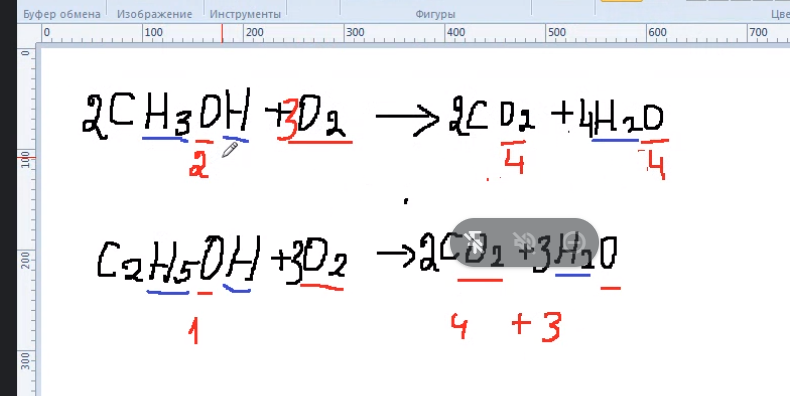 Буфер обмена Изображение Инструменты Фигуры Цве
0 100 200 300 400 500 600 700
0
100
200
300
2CH3OH + 3O2 → 2CO2 + 4H2O
2 4 4
C2H5OH + 3O2 → 2CO2 + 3H2O
1 4 + 3